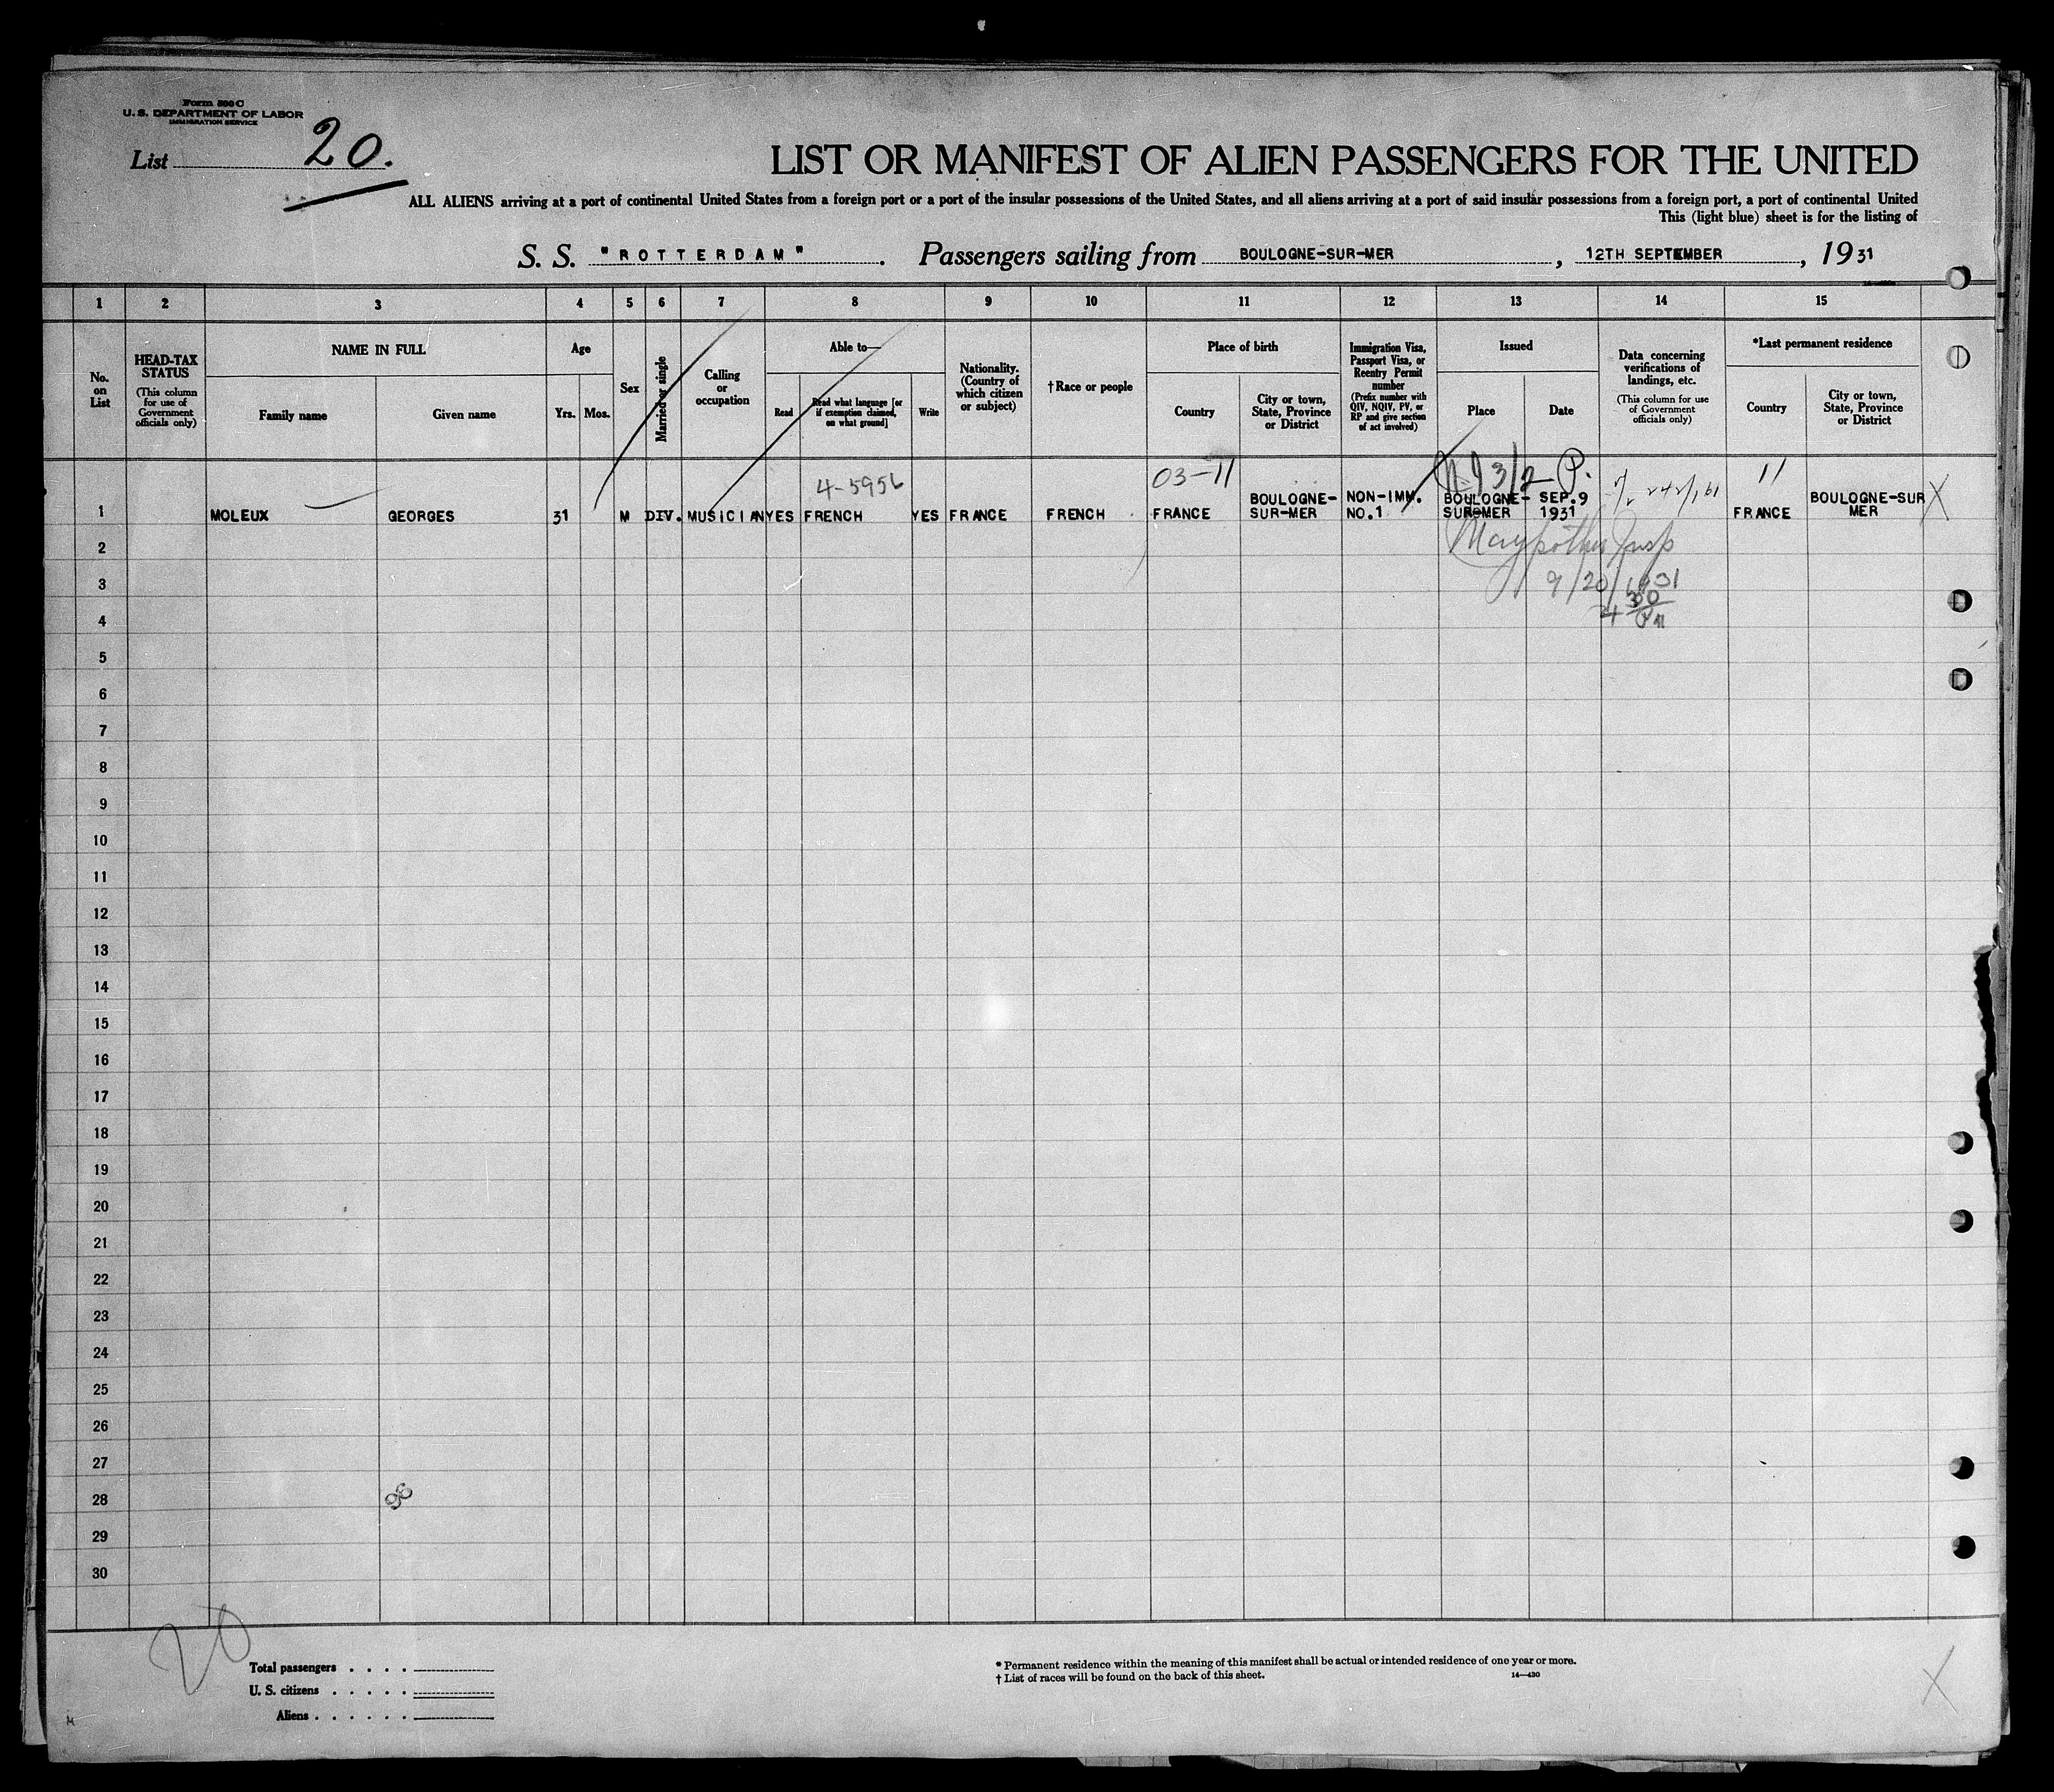 Form 500 C
U. S. DEPARTMENT OF LABOR
IMMIGRATION SERVICE
List 20.
LIST OR MANIFEST OF ALIEN PASSENGERS FOR THE UNITED
ALL ALIENS arriving at a port of continental United States from a foreign port or a port of the insular possessions of the United States, and all aliens arriving at a port of said insular possessions from a foreign port, a port of continental United
This (light blue) sheet is for the listing of
S. S. "ROTTERDAM". Passengers sailing from BOULOGNE-SUR-MER, 12TH SEPTEMBER, 1931
1 2 3 4 5 6 7 8 9 10 11 12 13 14 15
No. on List
HEAD-TAX STATUS
(This column for use of Government officials only)
NAME IN FULL
Family name
Given name
Age
Yrs. Mos.
Sex
Married or single
Calling or occupation
Able to—
Read
Read what language [or if exemption claimed, on what ground]
Write
Nationality. (Country of which citizen or subject)
†Race or people
Place of birth
Country
City or town, State, Province or District
Immigration Visa, Passport Visa, or Reentry Permit number
(Prefix number with QIV, NQIV, PV, or RP and give section of act involved)
Issued
Place
Date
Data concerning verifications of landings, etc.
(This column for use of Government officials only)
*Last permanent residence
Country
City or town, State, Province or District
4-5956 03-11 11
1 MOLEUX GEORGES 31 M DIV. MUSICIAN YES FRENCH YES FRANCE FRENCH FRANCE BOULOGNE-SUR-MER NON-IMM. NO.1 BOULOGNE-SUR-MER SEP.9 1931 FRANCE BOULOGNE-SUR MER X
2
3 9/20/1931
4 4 30 PM
5
6
7
8
9
10
11
12
13
14
15
16
17
18
19
20
21
22
23
24
25
26
27
28 96
29
30
20
Total passengers . . . .
U. S. citizens . . . . .
Aliens . . . . . .
* Permanent residence within the meaning of this manifest shall be actual or intended residence of one year or more.
† List of races will be found on the back of this sheet.
14—430
X